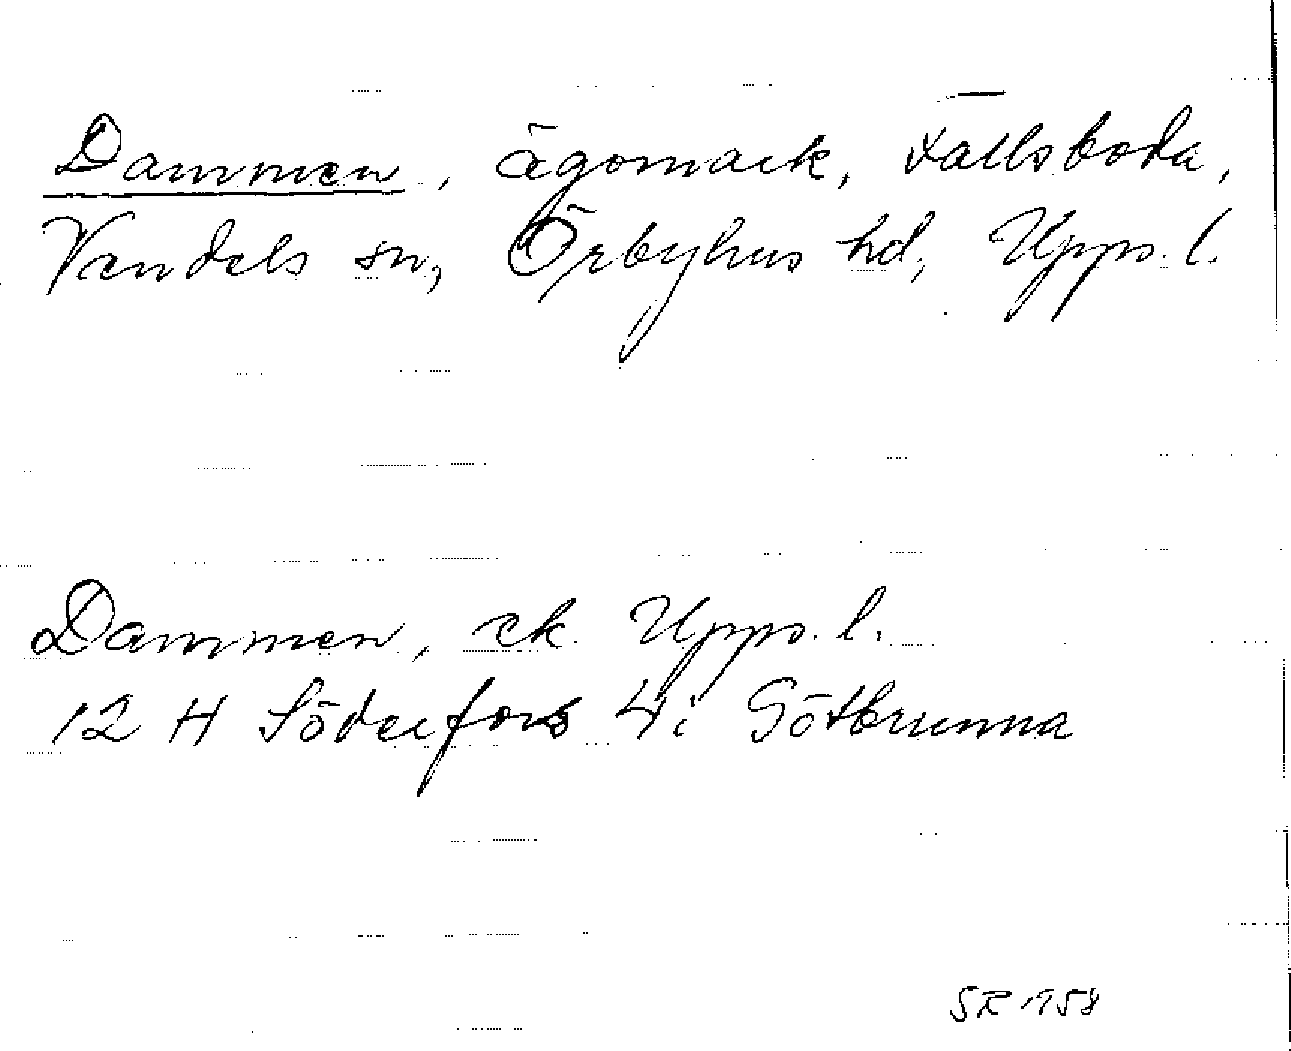 Dammen, ägomark, Fallsboda,
Vendels sn, Örbyhus hd, Upps. l.
Dammen, ek. Upps. l.
12 H Söderfors 4i Götbrunna
SR 1958